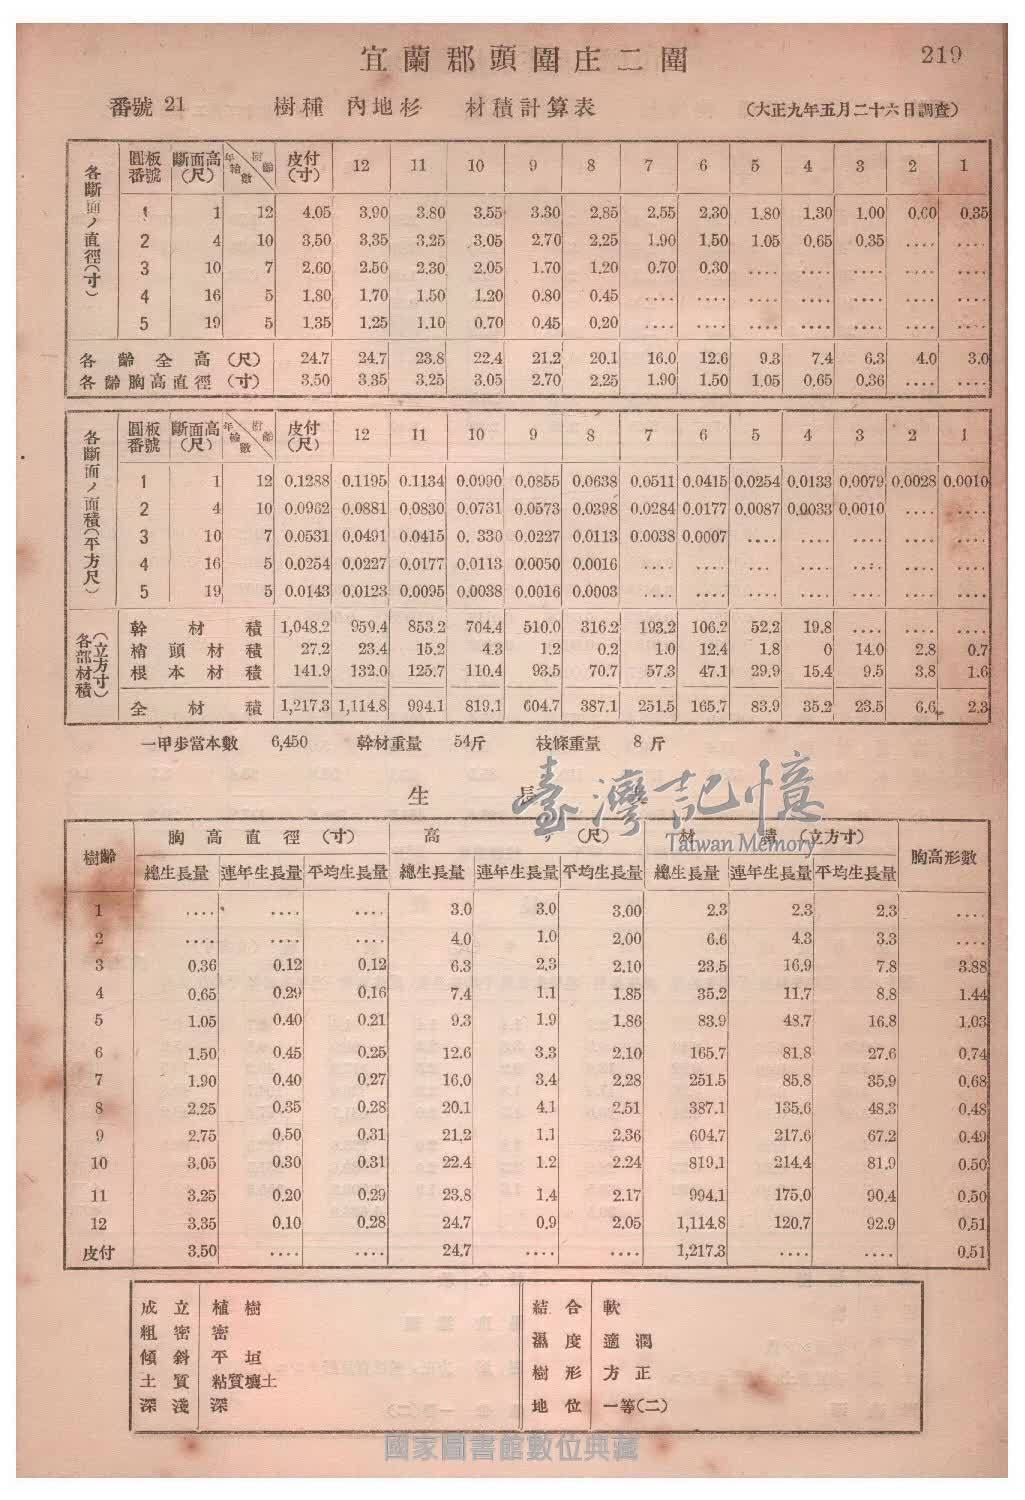 宜蘭郡頭圍庄二圍
219
番號 21 樹種 內地杉 材積計算表 (大正九年五月二十六日調査)
各斷面ノ直徑(寸)
圓板番號 斷面高(尺) 年輪數 樹齡 皮付(寸) 12 11 10 9 8 7 6 5 4 3 2 1
1 1 12 4.05 3.90 3.80 3.55 3.30 2.85 2.55 2.30 1.80 1.30 1.00 0.60 0.35
2 4 10 3.50 3.35 3.25 3.05 2.70 2.25 1.90 1.50 1.05 0.65 0.35 .... ....
3 10 7 2.60 2.50 2.30 2.05 1.70 1.20 0.70 0.30 .... .... .... .... ....
4 16 5 1.80 1.70 1.50 1.20 0.80 0.45 .... .... .... .... .... .... ....
5 19 5 1.35 1.25 1.10 0.70 0.45 0.20 .... .... .... .... .... .... ....
各齡全高(尺) 24.7 24.7 23.8 22.4 21.2 20.1 16.0 12.6 9.3 7.4 6.3 4.0 3.0
各齡胸高直徑(寸) 3.50 3.35 3.25 3.05 2.70 2.25 1.90 1.50 1.05 0.65 0.36 .... ....
各斷面ノ面積(平方尺)
圓板番號 斷面高(尺) 年輪數 樹齡 皮付(尺) 12 11 10 9 8 7 6 5 4 3 2 1
1 1 12 0.1288 0.1195 0.1134 0.0990 0.0855 0.0638 0.0511 0.0415 0.0254 0.0133 0.0079 0.0028 0.0010
2 4 10 0.0962 0.0881 0.0830 0.0731 0.0573 0.0398 0.0284 0.0177 0.0087 0.0033 0.0010 .... ....
3 10 7 0.0531 0.0491 0.0415 0. 330 0.0227 0.0113 0.0038 0.0007 .... .... .... .... ....
4 16 5 0.0254 0.0227 0.0177 0.0113 0.0050 0.0016 .... .... .... .... .... .... ....
5 19 5 0.0143 0.0123 0.0095 0.0038 0.0016 0.0003 .... .... .... .... .... .... ....
各部材積(立方寸)
幹材積 1,048.2 959.4 853.2 704.4 510.0 316.2 193.2 106.2 52.2 19.8 .... .... ....
梢頭材積 27.2 23.4 15.2 4.3 1.2 0.2 1.0 12.4 1.8 0 14.0 2.8 0.7
根本材積 141.9 132.0 125.7 110.4 93.5 70.7 57.3 47.1 29.9 15.4 9.5 3.8 1.6
全材積 1,217.3 1,114.8 994.1 819.1 604.7 387.1 251.5 165.7 83.9 35.2 23.5 6.6 2.3
一甲步當本數 6,450 幹材重量 54斤 枝條重量 8斤
生長
臺灣記憶
Taiwan Memory
樹齡 胸高直徑(寸) 高 (尺) 材積(立方寸) 胸高形數
總生長量 連年生長量 平均生長量 總生長量 連年生長量 平均生長量 總生長量 連年生長量 平均生長量
1 .... .... .... 3.0 3.0 3.00 2.3 2.3 2.3 ....
2 .... .... .... 4.0 1.0 2.00 6.6 4.3 3.3 ....
3 0.36 0.12 0.12 6.3 2.3 2.10 23.5 16.9 7.8 3.88
4 0.65 0.29 0.16 7.4 1.1 1.85 35.2 11.7 8.8 1.44
5 1.05 0.40 0.21 9.3 1.9 1.86 83.9 48.7 16.8 1.03
6 1.50 0.45 0.25 12.6 3.3 2.10 165.7 81.8 27.6 0.74
7 1.90 0.40 0.27 16.0 3.4 2.28 251.5 85.8 35.9 0.68
8 2.25 0.35 0.28 20.1 4.1 2.51 387.1 135.6 48.3 0.48
9 2.75 0.50 0.31 21.2 1.1 2.36 604.7 217.6 67.2 0.49
10 3.05 0.30 0.31 22.4 1.2 2.24 819.1 214.4 81.9 0.50
11 3.25 0.20 0.29 23.8 1.4 2.17 994.1 175.0 90.4 0.50
12 3.35 0.10 0.28 24.7 0.9 2.05 1,114.8 120.7 92.9 0.51
皮付 3.50 .... .... 24.7 .... .... 1,217.3 .... .... 0.51
成立 植樹
粗密 密
傾斜 平垣
土質 粘質壤土
深淺 深
結合 軟
濕度 適潤
樹形 方正
地位 一等(二)
國家圖書館數位典藏